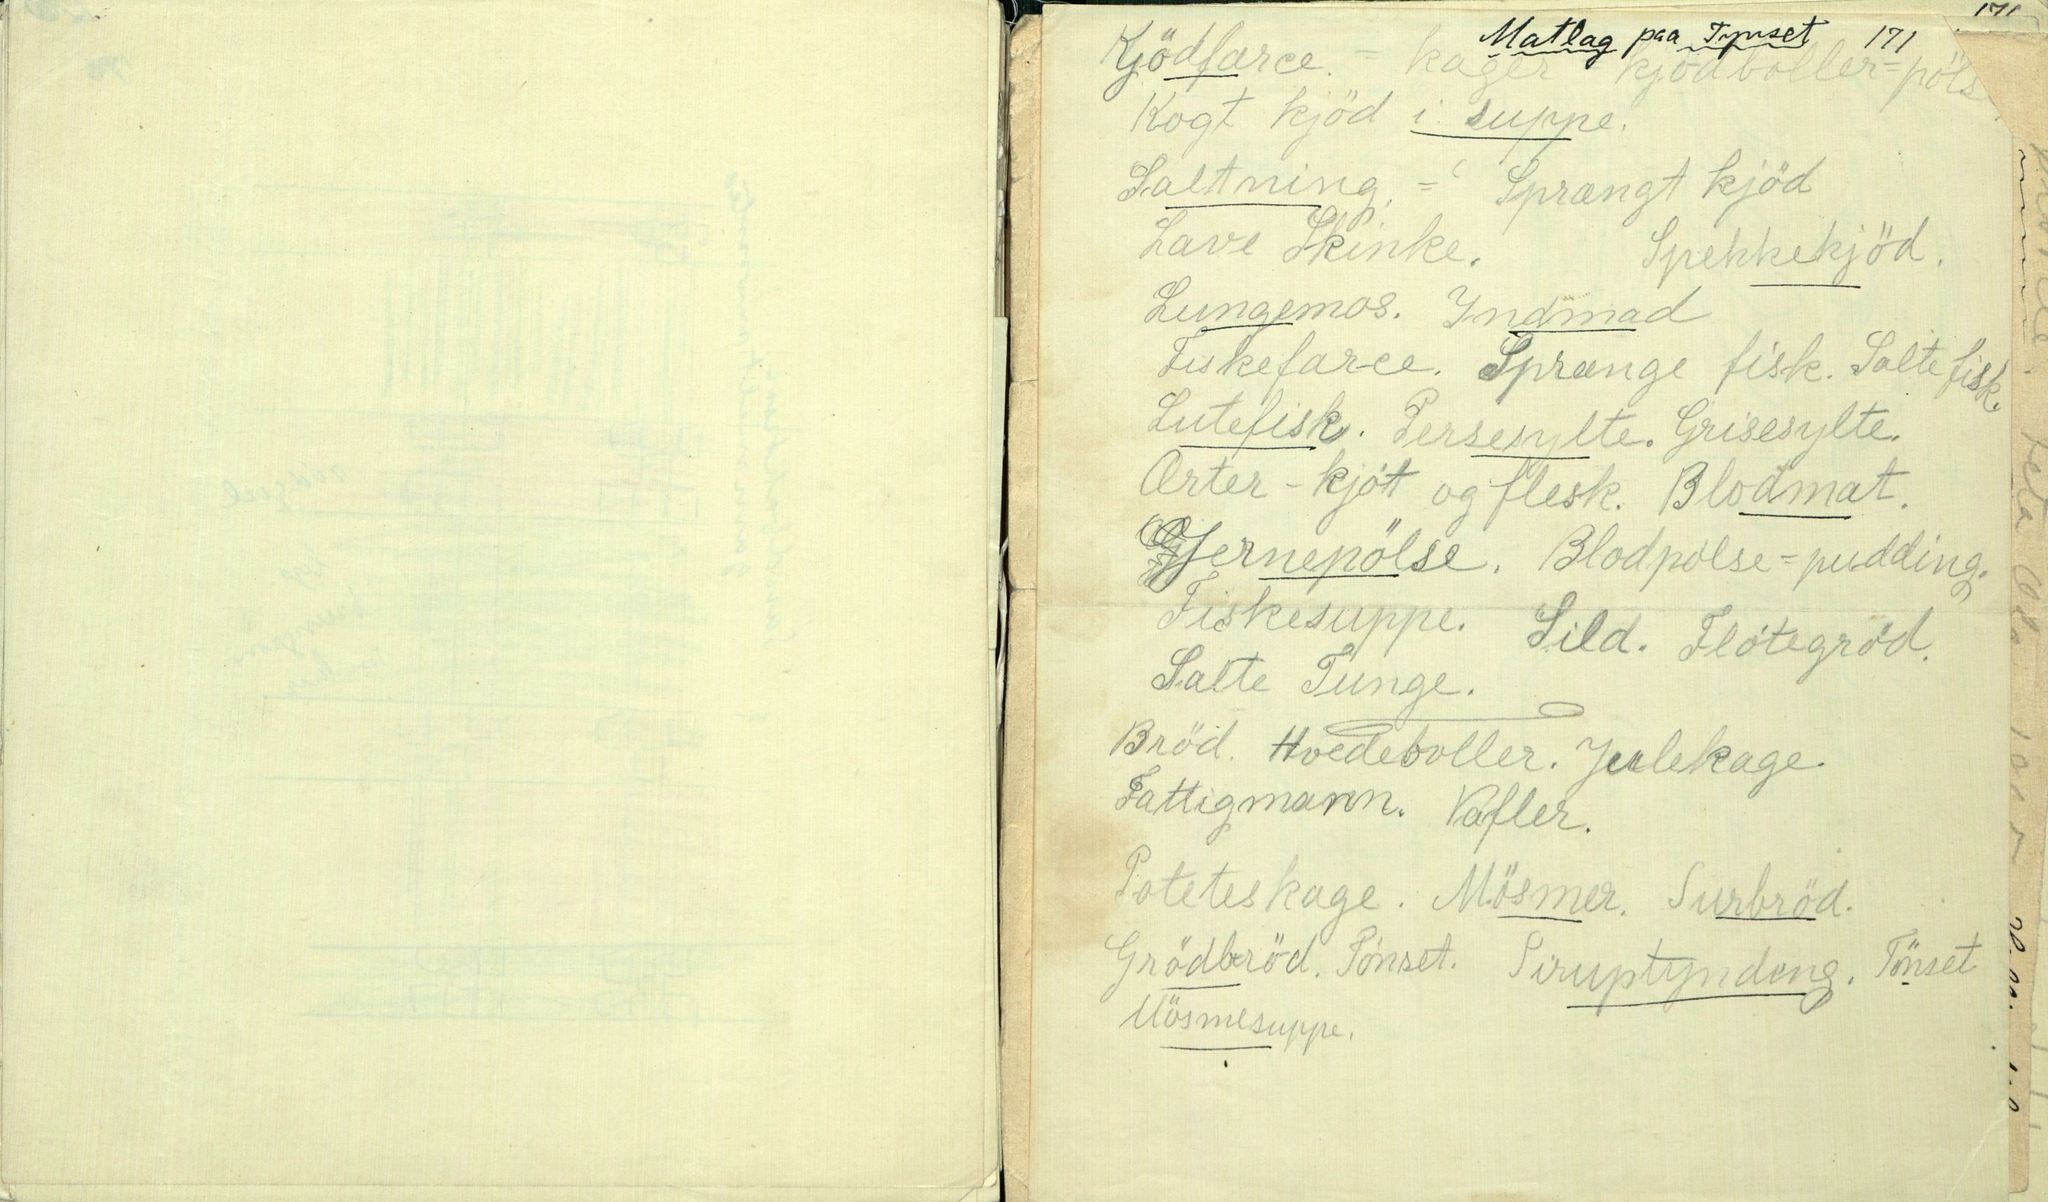 Matlag paa Tynset 171
Kjödfarce = kager kjödboller = pöls
Kogt kjöd i suppe.
Saltning. = Sprængt kjöd
Lave Skinke. Spekkekjöd.
Lungemos. Indmad
Fiskefarce. Sprænge fisk. Salte fisk.
Lutefisk. Persesylte. Grisesylte.
Ærter - kjöt og flesk. Blodmat.
Gjernepölse. Blodpölse = pudding.
Fiskesuppe. Sild. Flötegröd.
Salte Tunge.
Bröd. Hvedeboller. Julekage.
Fattigmann. Vafler.
Poteteskage. Mösmer. Surbröd.
Grödbröd. Tönset. Siruptynding. Tönset
Mösmesuppe.